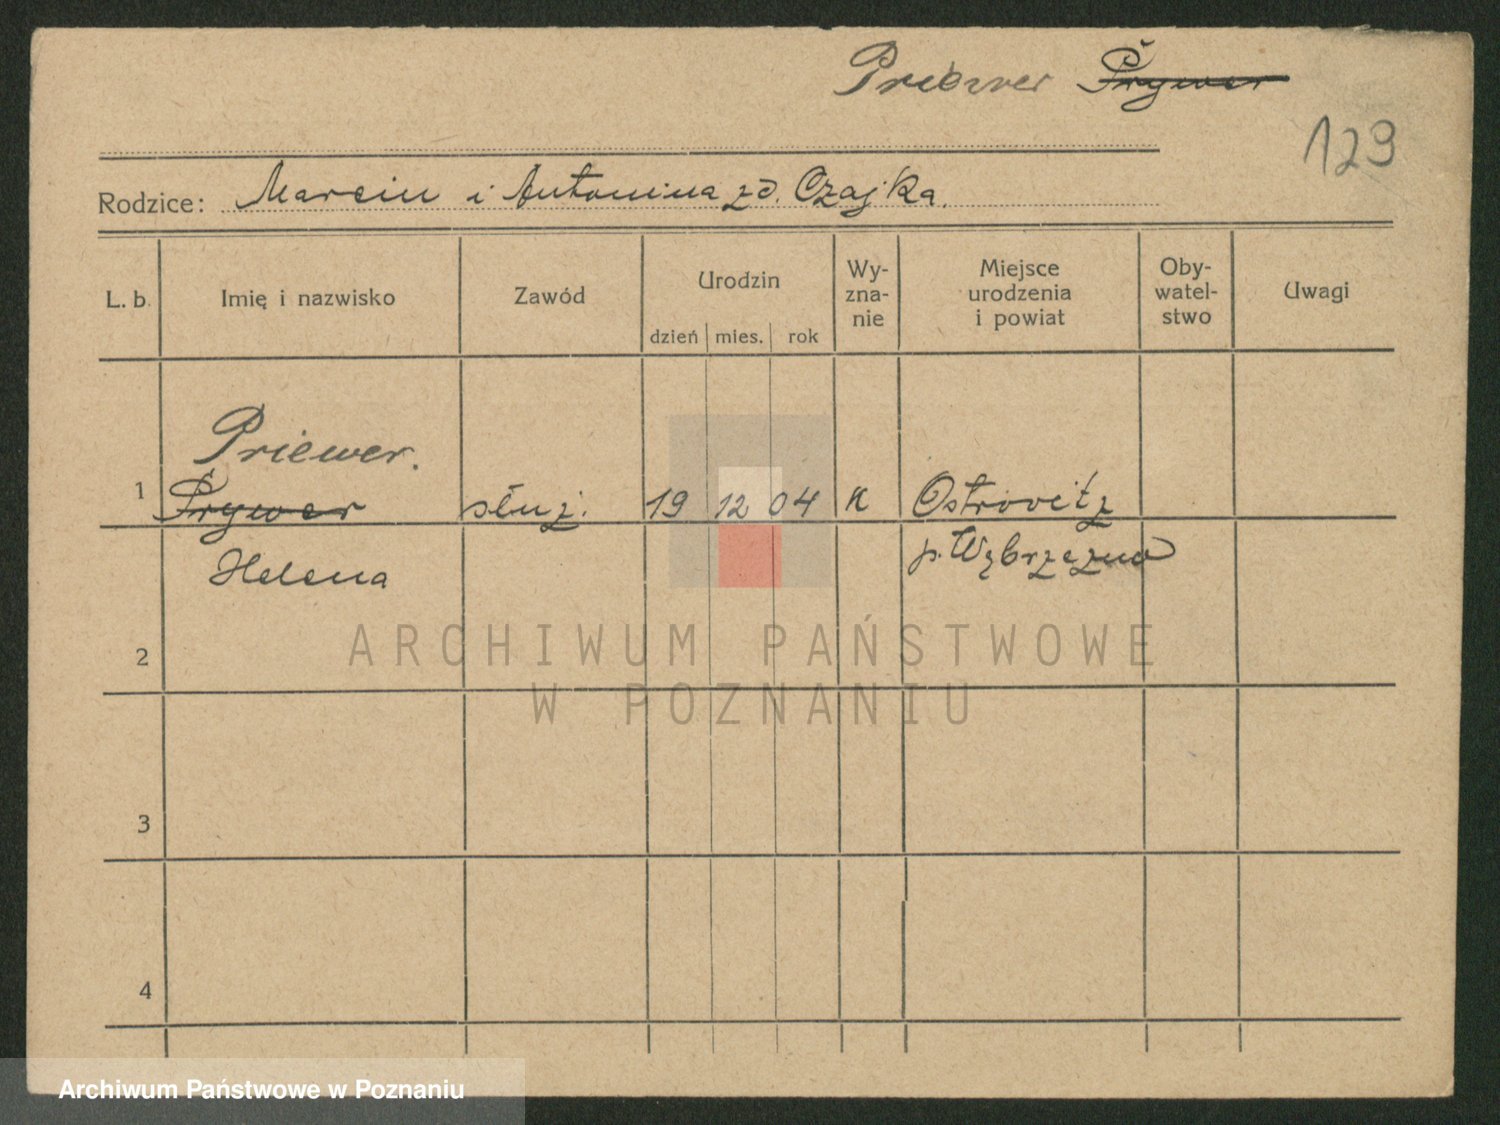 Priewer Prywer
129
Rodzice: Marcin i Antonina zd. Czajka.
L. b. Imię i nazwisko Zawód Urodzin dzień mies. rok Wy-zna-nie Miejsce urodzenia i powiat Oby-watel-stwo Uwagi
Priewer.
1 Prywer służ. 19 12 04 k Ostrovitz
Helena p. Wąbrzeźno
2
3
4
ARCHIWUM PAŃSTWOWE
W POZNANIU
Archiwum Państwowe w Poznaniu